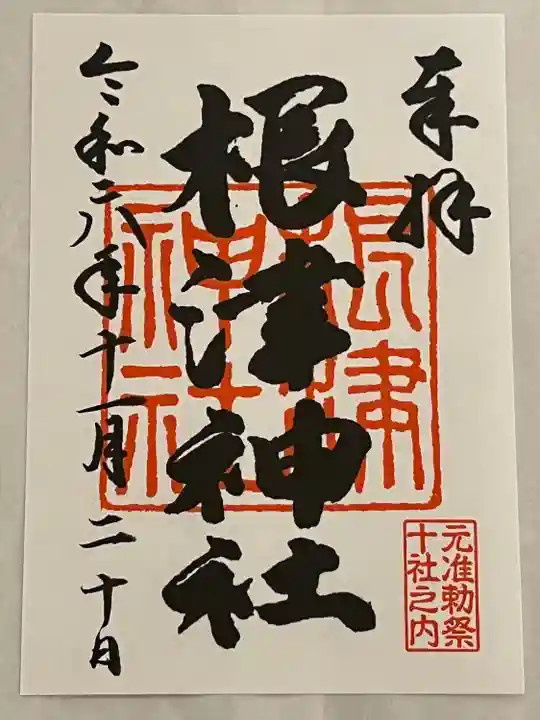 奉拝
根津神社
令和六年十一月二十日
根津
神社
元准勅祭
十社之内